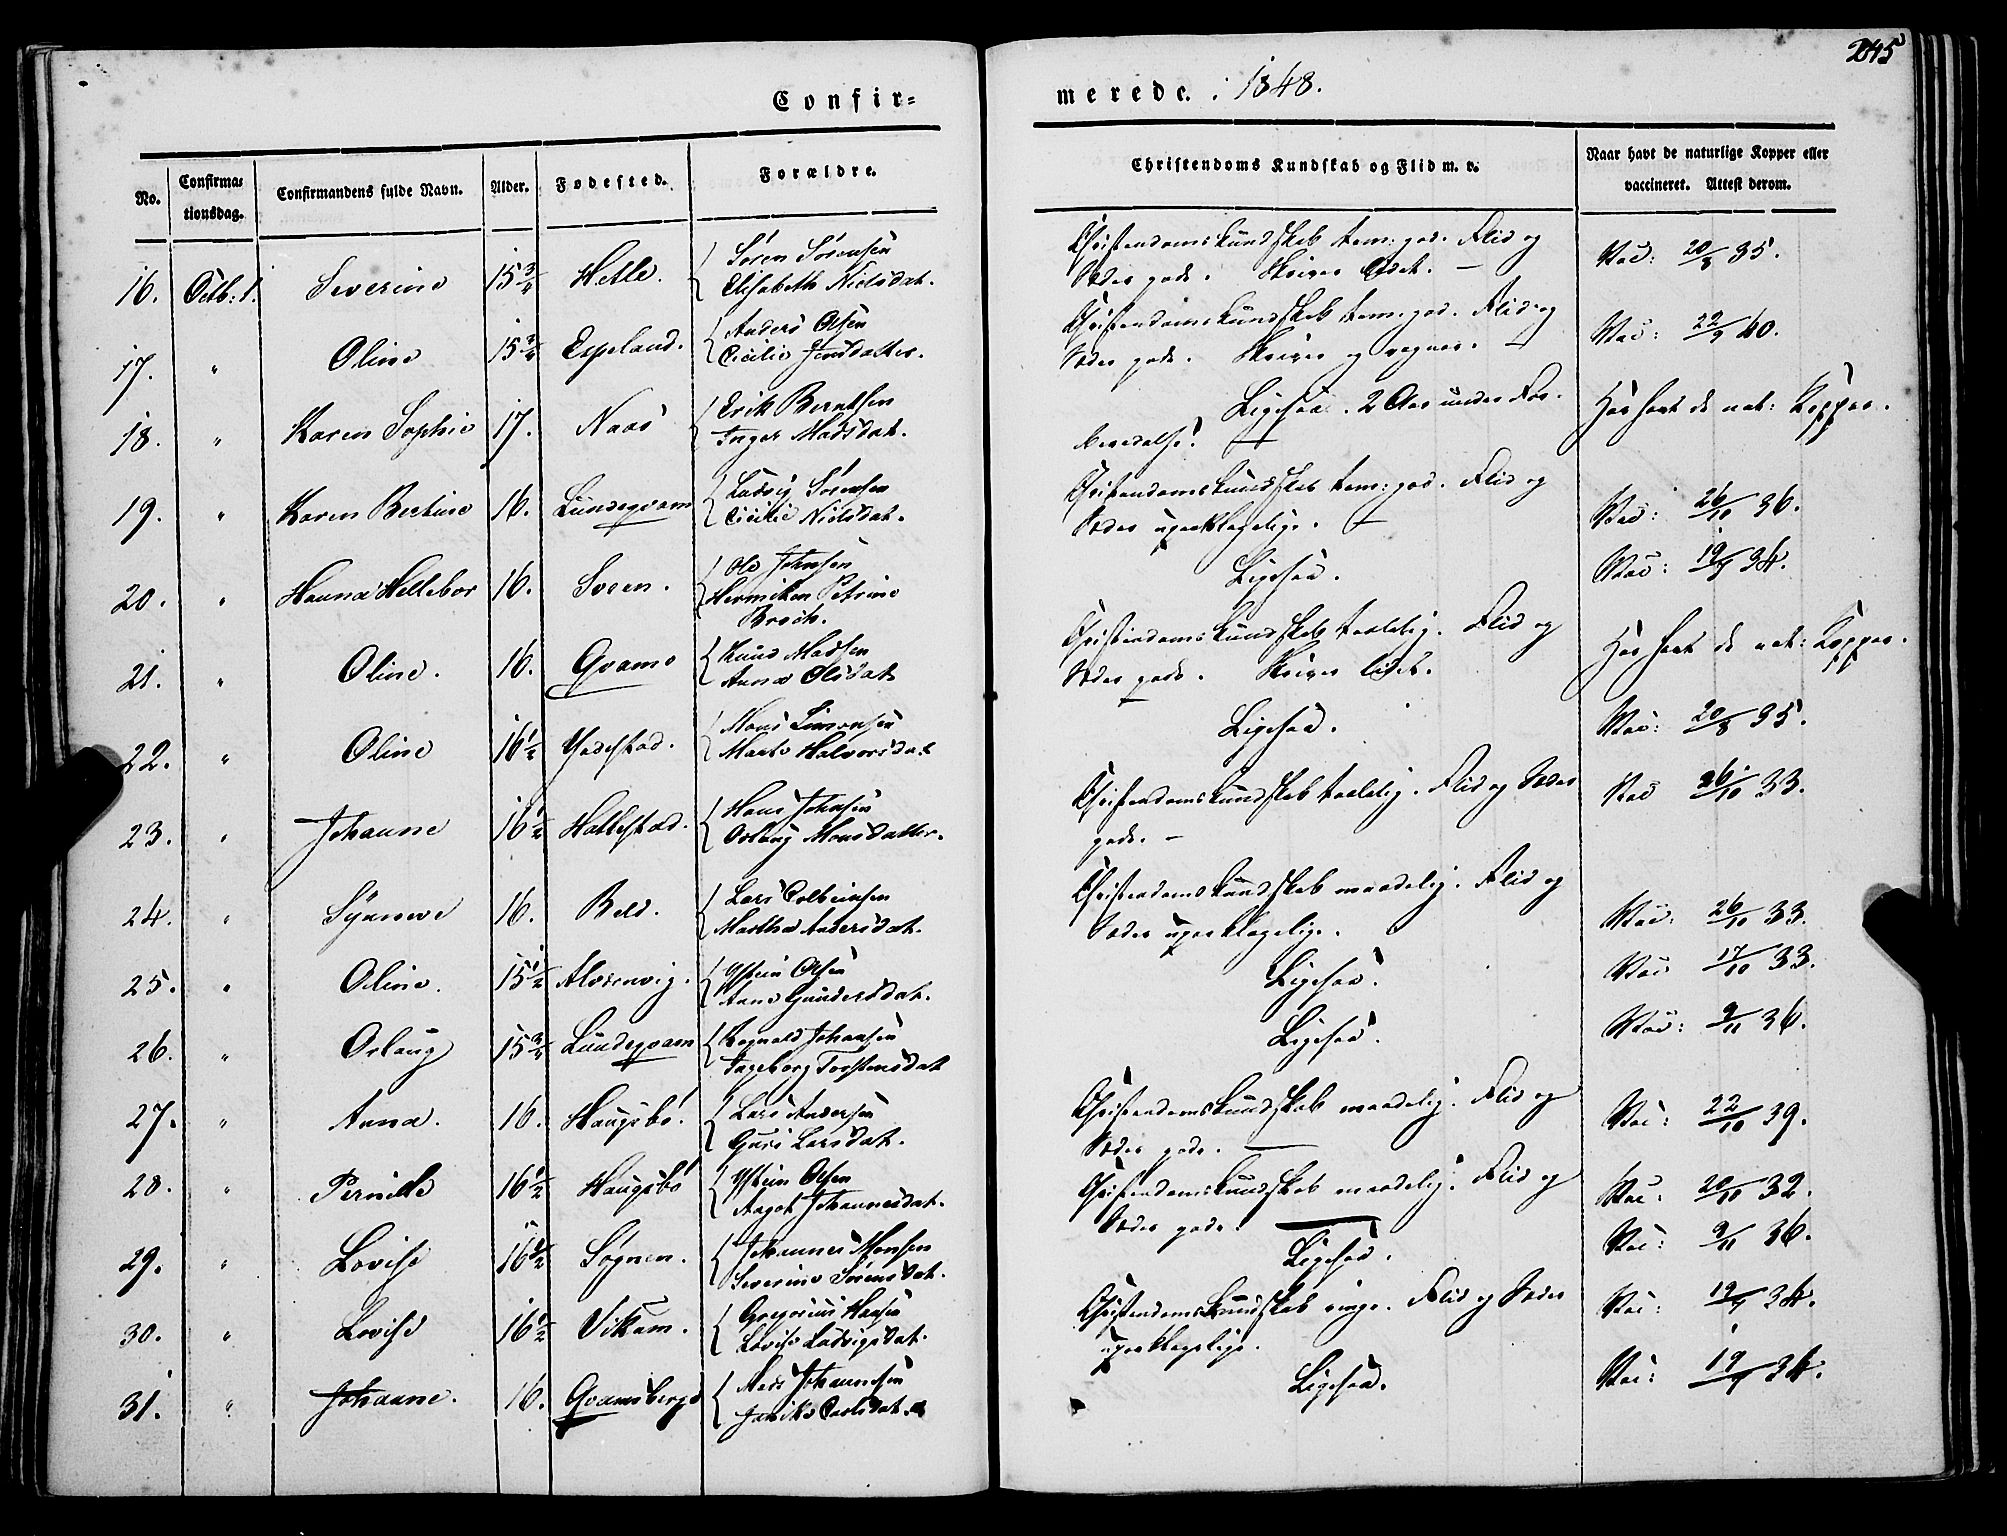 245
Confir-
merede. i 1848.
No.
Confirma-
tionsdag.
Confirmandens fulde Navn.
Alder.
Fødested.
Forældre.
Christendoms Kundskab og Flid m. v.
Naar havt de naturlige Kopper eller
vaccineret. Attest derom.
16. Octb: 1. Severine 15 3/4 Hetle. Sören Sörensen
Elisabeth Nielsdat.
Christendomskundskab tem: god. Flid og
Sæder gode. Skriver lidet. Vac: 20/8 35.
17. " Oline 15 3/4 Espeland. Anders Olsen
Cicilie Jensdatter.
Christendomskundskab tem: god. Flid og
Sæder gode. Skriver og regner. Vac: 22/9 40.
18. " Karen Sophie 17. Naas Erik Berntsen
Inger Madsdat.
Ligesaa. 2 Aar under For-
beredelse. Har havt de nat: Kopper.
19. " Karen Bertine 16. Lundeqvam Ludvig Sörensen
Cicilie Nielsdat.
Christendomskundskab tem: god. Flid og
Sæder upaaklagelige. Vac: 26/10 36.
20. " Hanna Hellebor 16. Sveen. Ole Johnsen
Hermiken Petrine
Broch.
Ligesaa. Vac: 19/9 34.
21. " Oline. 16. Qvame Knud Madsen
Anna Olsdat
Christendomskundskab taalelig. Flid og
Sæder gode. Skriver lidet. Har havt de nat: Kopper.
22. " Oline 16 1/2 Yndestad. Mons Simonsen
Marte Halvorsdat
Ligesaa. Vac: 20/8 35.
23. " Johanne 16 1/2 Hallestad. Hans Johnsen
Oslaug Monsdatter.
Christendomskundskab taalelig. Flid og Sæder
gode. Vac 26/10 33.
24. " Synneve 16. Beld. Lars Colbeinsen
Martha Andersdat.
Christendomskundskab maadelig. Flid og
Sæder upaaklagelige. Vac: 26/10 33.
25. " Oline. 15 1/2 Alvrenvig. Ystein Olsen
Anne Gundersdat.
Ligesaa. Vac 17/10 33.
26. " Oslaug 15 3/4 Lundeqvam Rognald Johansen
Ingeborg Torstensdat
Ligesaa. Vac: 9/11 36.
27. " Anna. 16. Haugsbö. Lars Andersen
Guri Larsdat.
Christendomskundskab maadelig. Flid og
Sæder gode. Vac: 22/10 39.
28. " Pernille 16 1/2 Haugsbö Ystein Olsen
Aagot Johannesdat.
Christendomskundskab maadelig. Flid og
Sæder gode. Vac: 20/10 32.
29. " Lovise 16 1/2 Sögnen. Johannes Monsen
Severine Sörensdat.
Ligesaa. Vac: 9/11 36.
30. " Lovise 16 1/2 Vikum. Gregorius Hansen
Lovise Ludvigsdat.
Christendomskundskab ringe. Flid og Sæder
upaaklagelige. Vac: 19/9 34.
31. " Johanne. 16. Qvamsberge Mads Johannesen
Janike Carlsdat.
Ligesaa. Vac: 19/9 34.